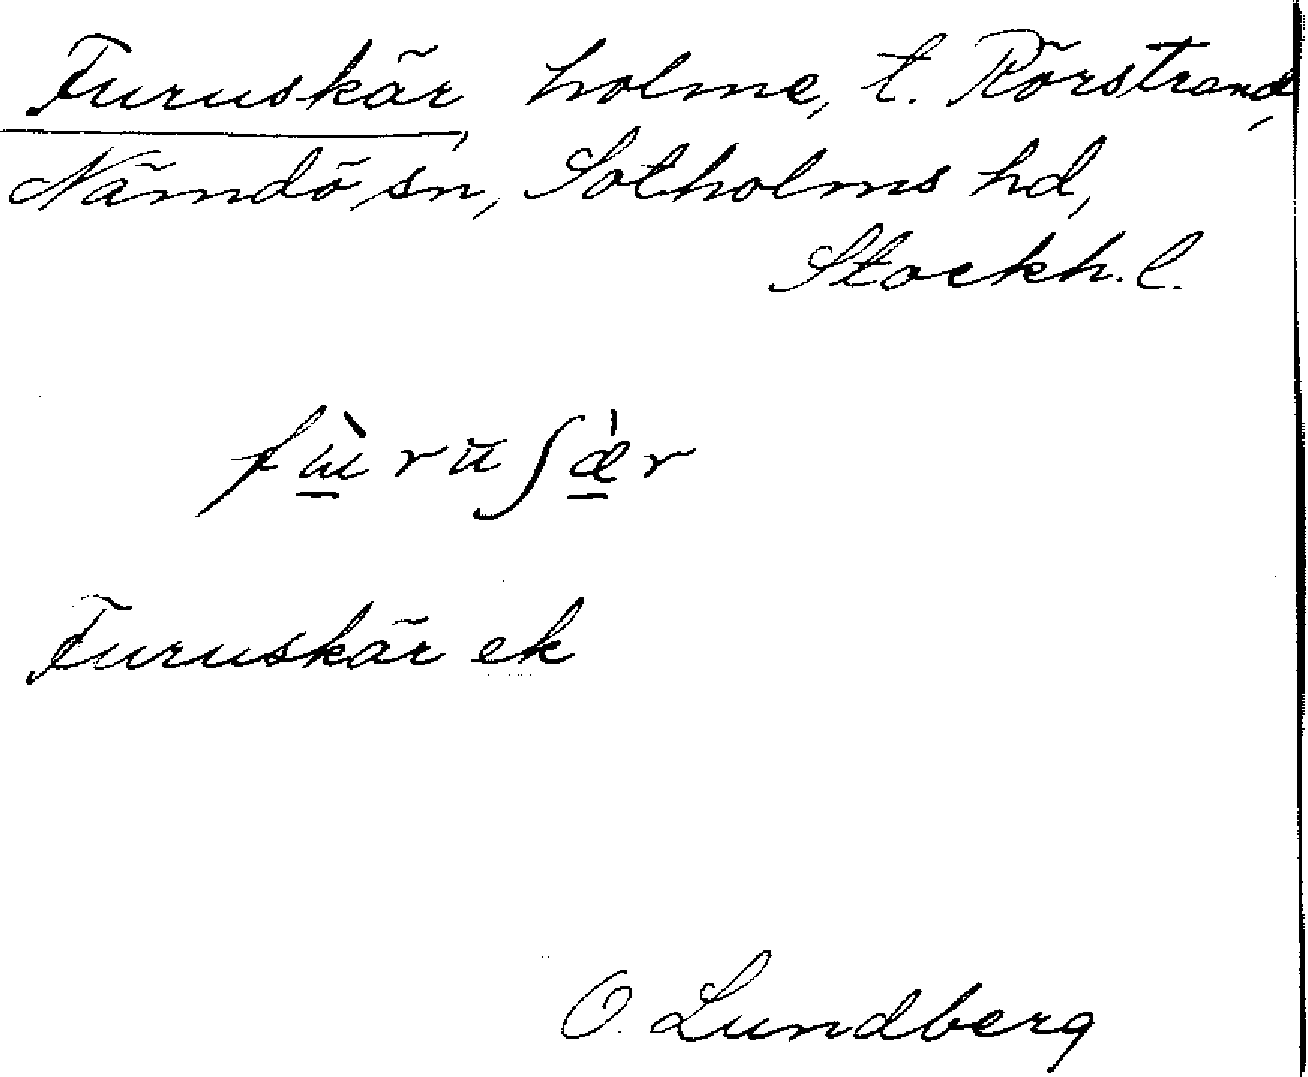 Furuskär, holme, t. Rörstrand,
Nämdö sn, Sotholms hd,
Stockh. l.
fɯ̀ruʃǽr
Furuskär ek
O. Lundberg